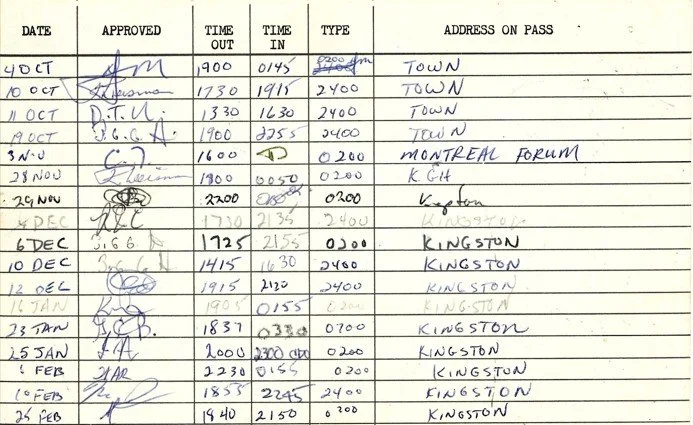 DATE APPROVED TIME OUT TIME IN TYPE ADDRESS ON PASS
4 OCT 1900 0145 0200 TOWN
10 OCT 1730 1915 2400 TOWN
11 OCT D.T.U. 1330 1630 2400 TOWN
19 OCT J.G.G.A. 1900 2255 2400 TOWN
3 NOV 1600 0200 MONTREAL FORUM
28 NOV 1800 0050 0200 KGH
29 NOV 2200 0200 Kingston
DEC 1730 2135 2400 KINGSTON
6 DEC 1725 2155 0200 KINGSTON
10 DEC 1415 1630 2400 KINGSTON
12 DEC 1915 2120 2400 KINGSTON
16 JAN 1905 0155 0200 KINGSTON
23 JAN 1837 0330 0700 KINGSTON
25 JAN 2000 2300 0200 KINGSTON
1 FEB 2230 0155 0200 KINGSTON
10 FEB 1855 2245 2400 KINGSTON
25 FEB 1840 2150 0200 KINGSTON